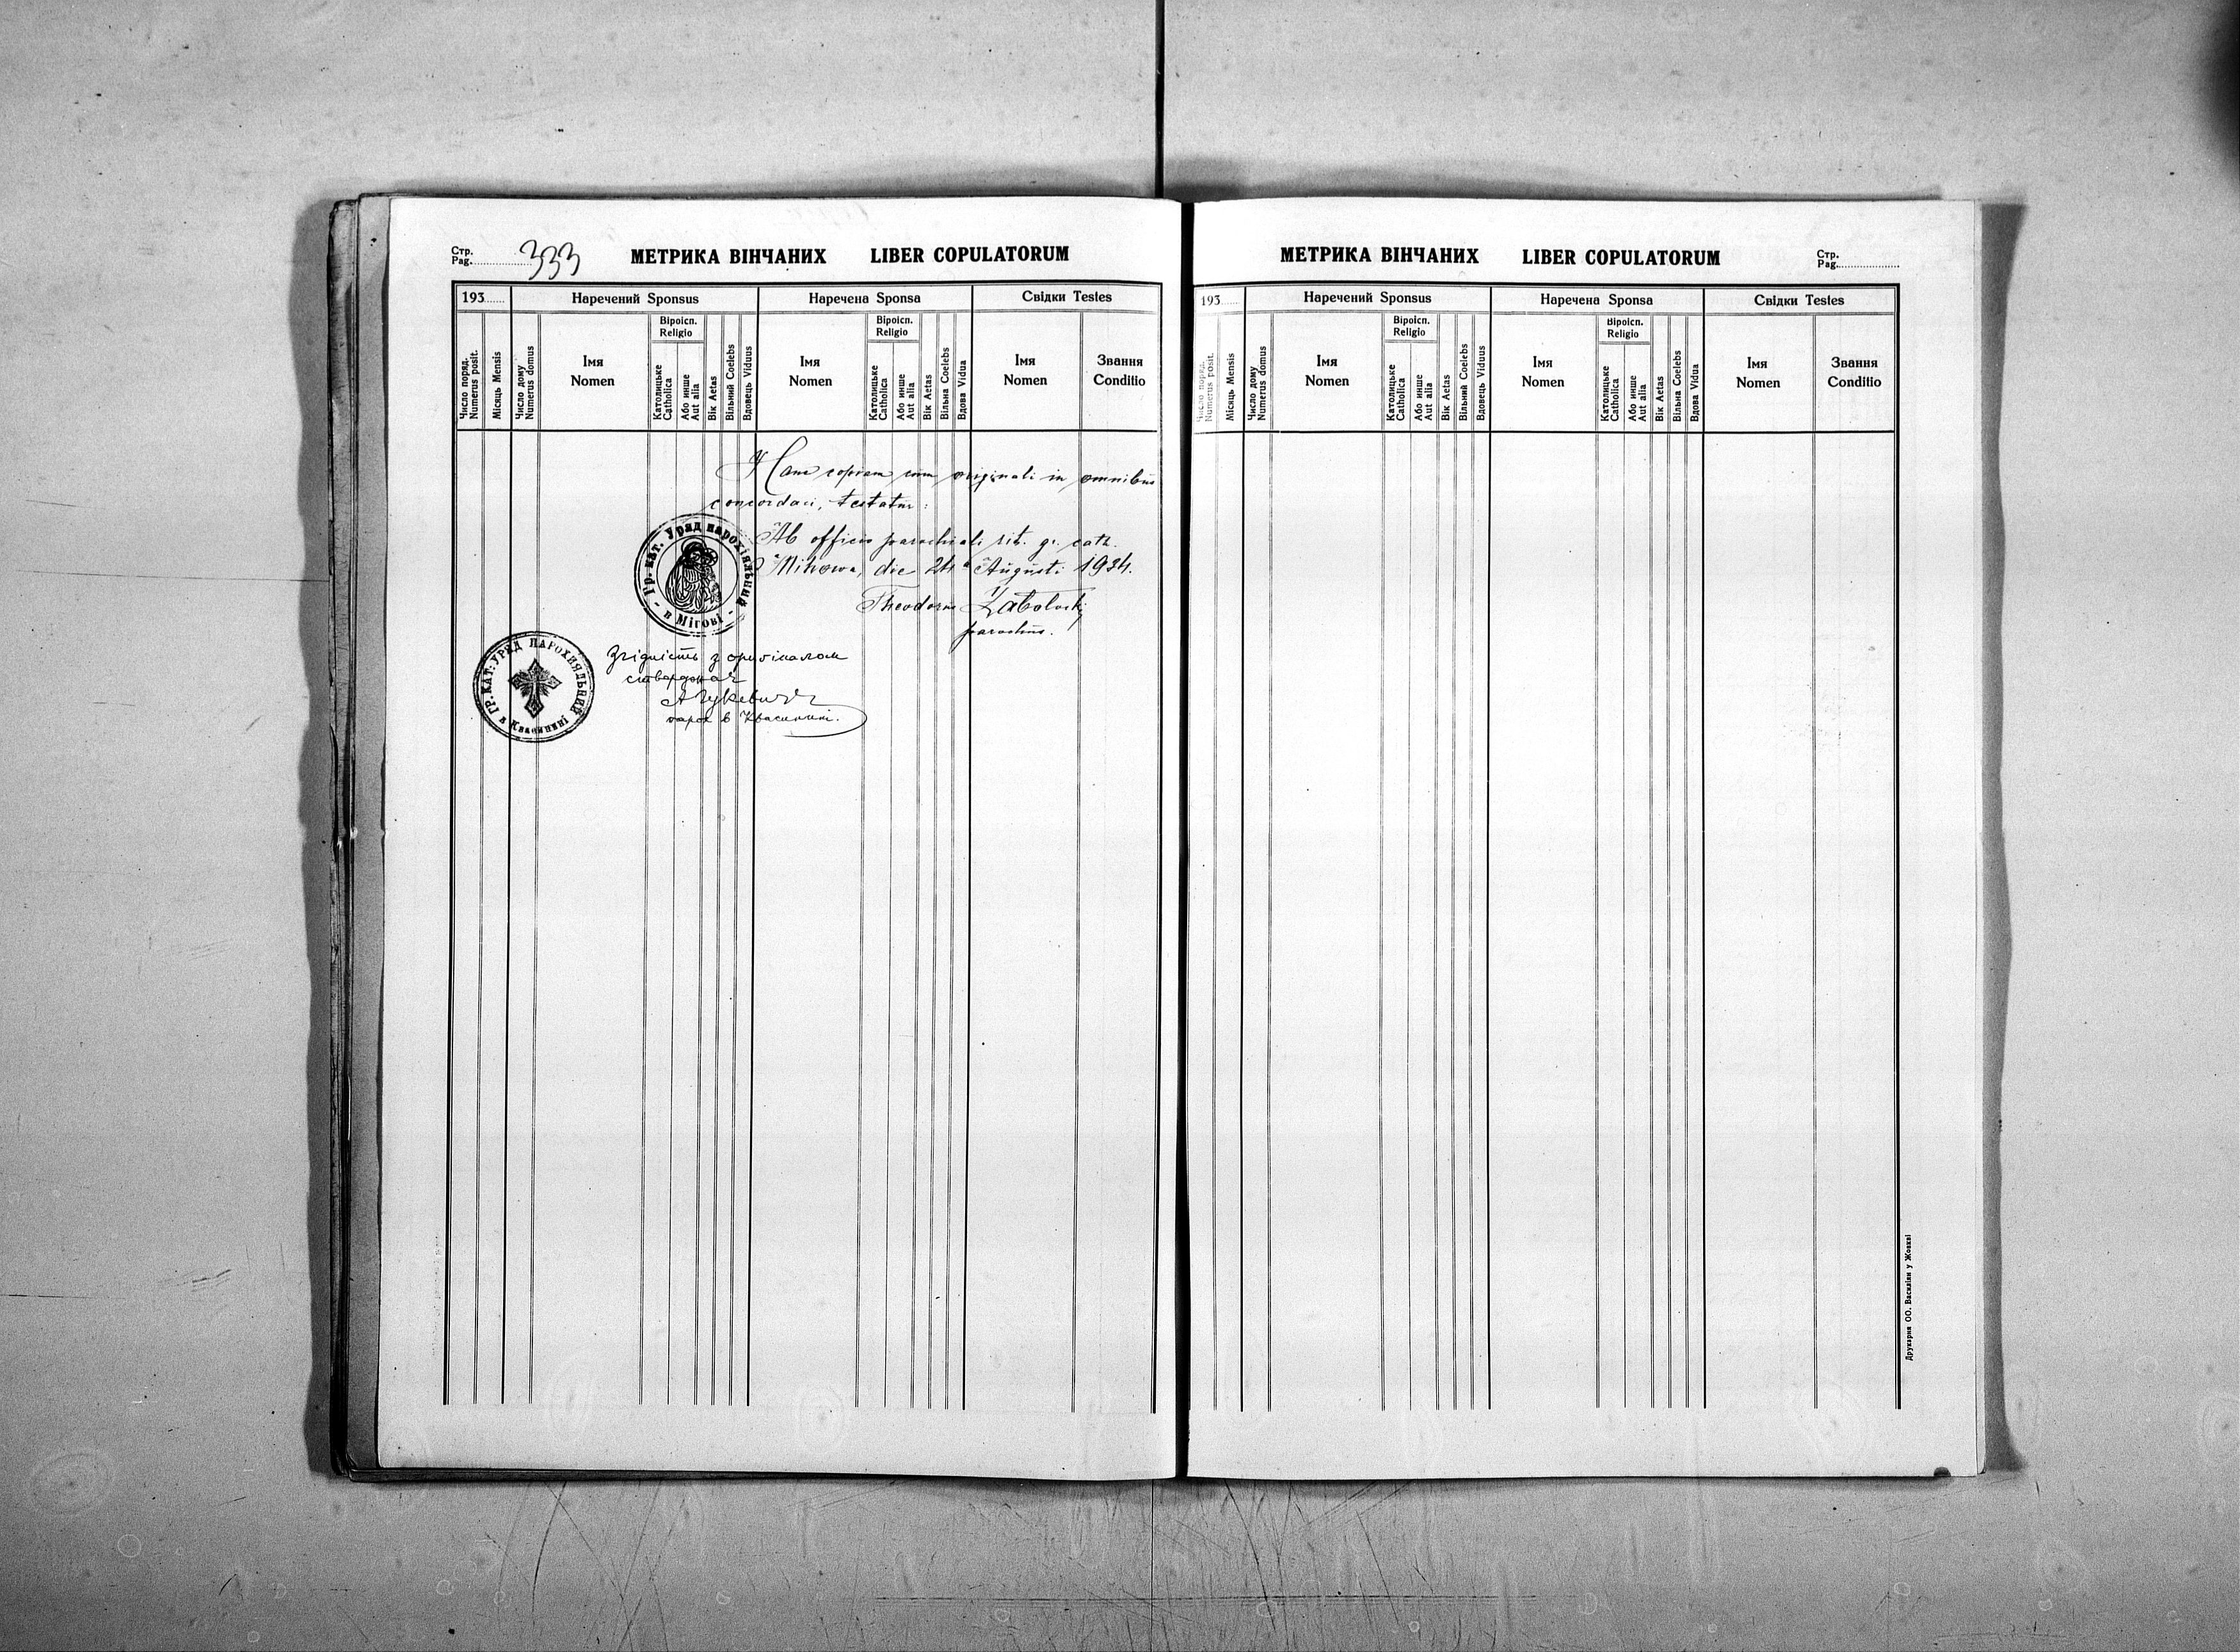 Стр.
Pag. 333
МЕТРИКА ВІНЧАНИХ LIBER COPULATORUM
193
Наречений Sponsus
Наречена Sponsa
Свідки Testes
Число поряд.
Numerus posit.
Місяць Mensis
Число дому
Numerus domus
Імя
Nomen
Віроісп.
Religio
Католицьке
Catholica
Або инше
Aut alia
Вік Aetas
Вільний Coelebs
Вдовець Viduus
Імя
Nomen
Віроісп.
Religio
Католицьке
Catholica
Або инше
Aut alia
Вік Aetas
Вільна Coelebs
Вдова Vidua
Імя
Nomen
Звання
Conditio
Hanc copiam cum originali in omnibus
concordari, testatur:
Ab officio parochiali rit. gr. cath.
Mihowa, die 24 Augusti 1934.
Theodorus
parochus.
Гр. кат. Уряд парохіяльний
в Мігові
Згідність з оригіналом
стверджає
парох в Квасенині.
ГР. КАТ. УРЯД ПАРОХІЯЛЬНИЙ
в Квасенині
МЕТРИКА ВІНЧАНИХ LIBER COPULATORUM
Стр.
Pag.
193
Наречений Sponsus
Наречена Sponsa
Свідки Testes
Число поряд.
Numerus posit.
Місяць Mensis
Число дому
Numerus domus
Імя
Nomen
Віроісп.
Religio
Католицьке
Catholica
Або инше
Aut alia
Вік Aetas
Вільний Coelebs
Вдовець Viduus
Імя
Nomen
Віроісп.
Religio
Католицьке
Catholica
Або инше
Aut alia
Вік Aetas
Вільна Coelebs
Вдова Vidua
Імя
Nomen
Звання
Conditio
Друкарня ОО. Василіян у Жовкві